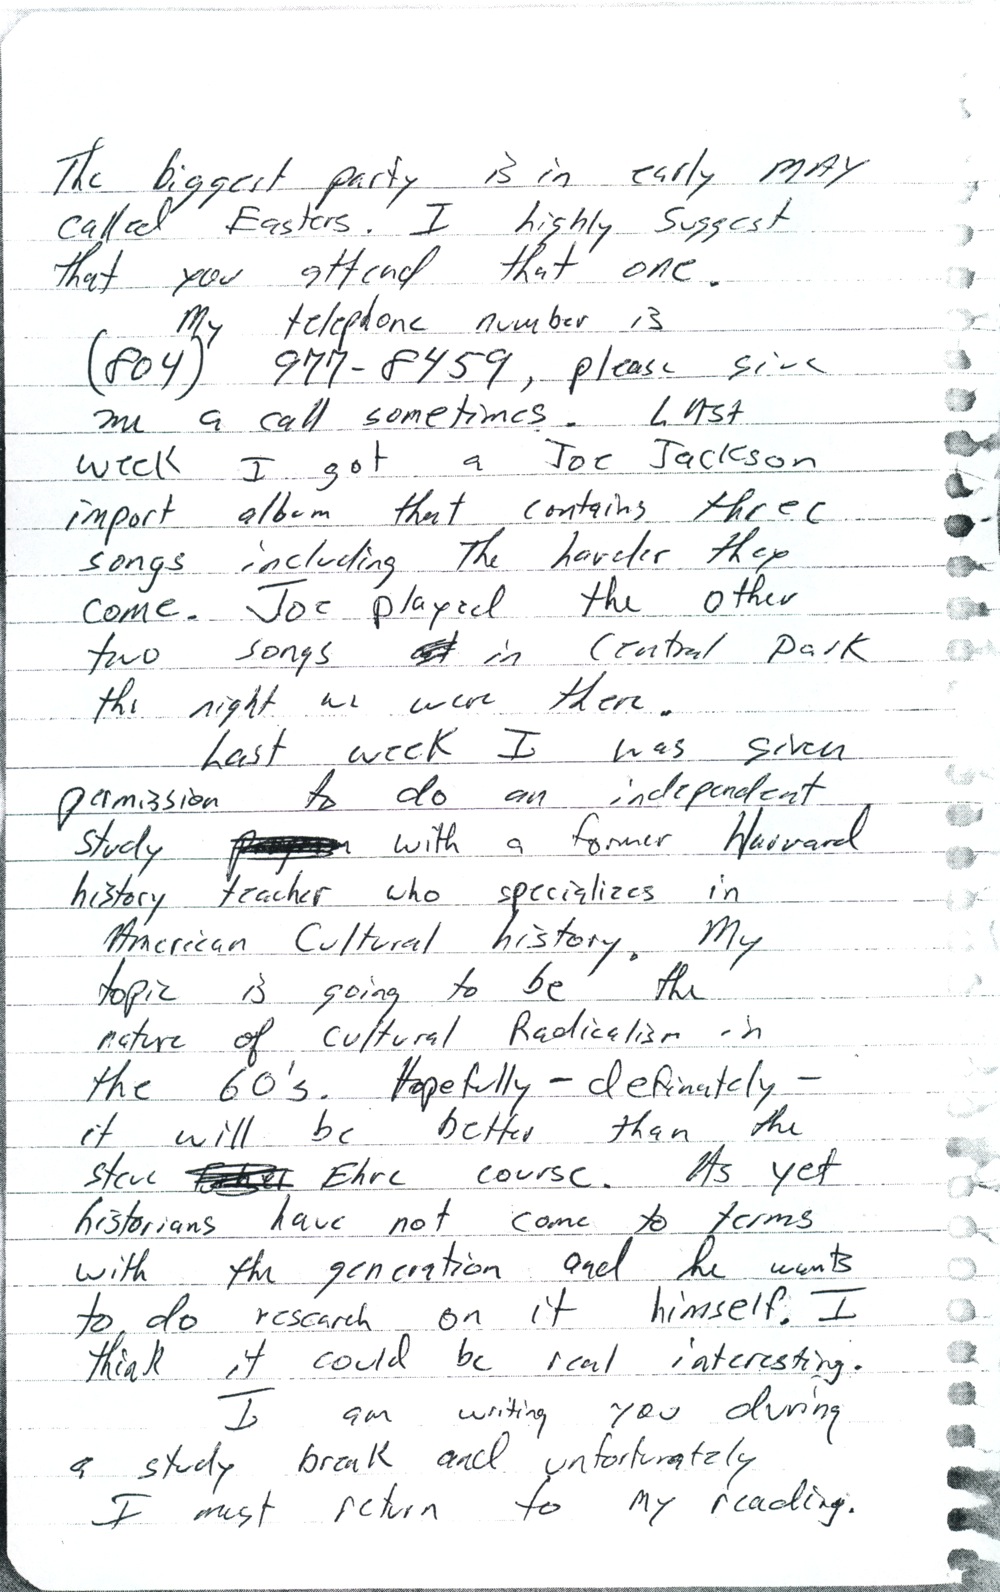 The biggest party is in early MAY
called Easters. I highly suggest
that you attend that one.
My telephone number is
(804) 977-8459, please give
me a call sometimes. LAst
week I got a Joe Jackson
import album that contains three
songs including The harder they
come. Joe played the other
two songs in Central Park
the night we were there.
Last week I was given
permission to do an independent
study with a former Harvard
history teacher who specializes in
American Cultural history. My
topic is going to be the
nature of Cultural Radicalism in
the 60's. Hopefully - definately -
it will be better than the
steve Ehre course. As yet
historians have not come to terms
with the generation and he wants
to do research on it himself. I
think it could be real interesting.
I am writing you during
a study break and unfortunately
I must return to my reading.